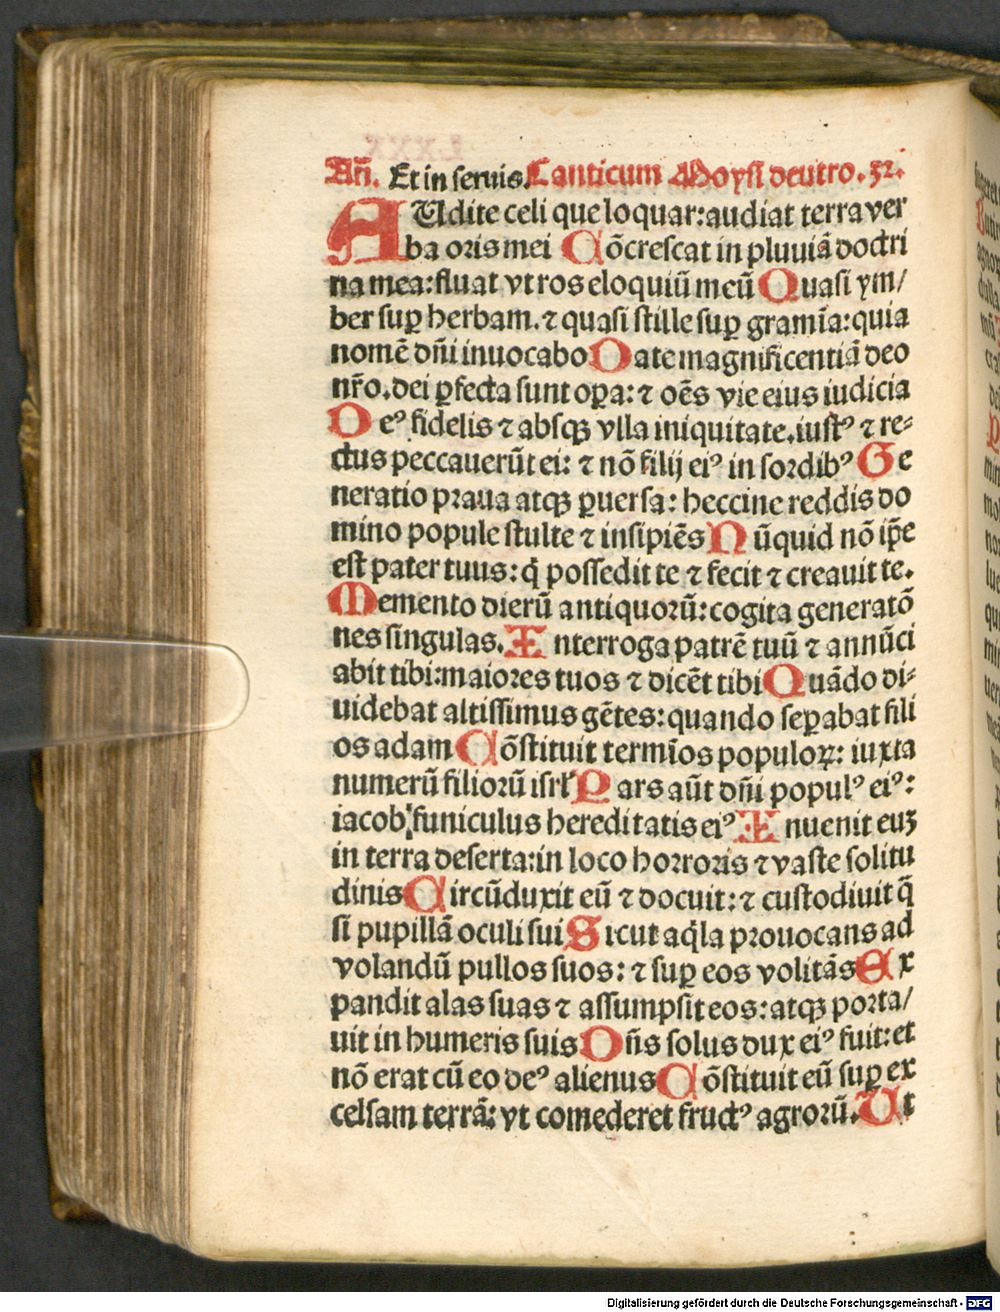 Añ. Et in seruis. Canticum Moysi deutro. 32.
AUdite celi que loquar: audiat terra ver
ba oris mei Cōcrescat in pluuiā doctri
na mea: fluat vt ros eloquiū meū Quasi ym/
ber suꝑ herbam. ⁊ quasi stille suꝑ gramīa: quia
nomē dñi inuocabo Date magnificentiā deo
nr̄o. dei ꝑfecta sunt oꝑa: ⁊ oēs vie eius iudicia
Deꝰ fidelis ⁊ absqꝫ vlla iniquitate. iustꝰ ⁊ re-
ctus peccauerūt ei: ⁊ nō filij eiꝰ in sordibꝰ Ge
neratio praua atqꝫ ꝑuersa: heccine reddis do
mino popule stulte ⁊ insipiēs Nūquid nō ip̄e
est pater tuus: q̇ possedit te ⁊ fecit ⁊ creauit te.
Memento dierū antiquorū: cogita generatō
nes singulas. Interroga patrē tuū ⁊ annūci
abit tibi: maiores tuos ⁊ dicēt tibi Quādo di-
uidebat altissimus gētes: quando seꝑabat fili
os adam Cōstituit termīos populoꝝ: iuxta
numerū filiorū isrl̕ Pars aūt dñi populꝰ eiꝰ:
iacob funiculus hereditatis eiꝰ Inuenit euꝫ
in terra deserta: in loco horroris ⁊ vaste solitu
dinis Circūduxit eū ⁊ docuit: ⁊ custodiuit q̄
si pupillā oculi sui Sicut aq̇la prouocans ad
volandū pullos suos: ⁊ suꝑ eos volitās Ex
pandit alas suas ⁊ assumpsit eos: atqꝫ porta/
uit in humeris suis Dñs solus dux eiꝰ fuit: et
nō erat cū eo deꝰ alienus Cōstituit eū suꝑ ex
celsam terrā: vt comederet fructꝰ agrorū. Ut
Digitalisierung gefördert durch die Deutsche Forschungsgemeinschaft - DFG